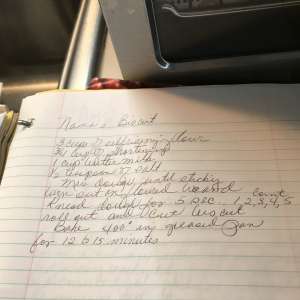 Nana's Biscut
3 cup self rising flour
3/4 cup shortening
1 cup butter milk
1/2 teaspoon salt
Mix dough until sticky
turn out on floured board
Knead dough for 5 sec. 1, 2, 3, 4, 5 count
roll out and cut biscut
Bake 400° in greased pan
for 12 to 15 minutes